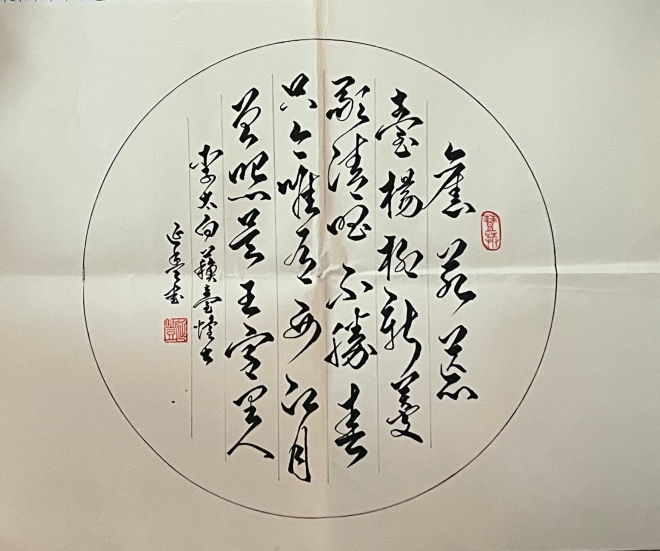 舊苑荒
臺楊柳新菱
歌清唱不勝春
只今唯有西江月
曾照吳王宮里人
李太白蘓臺懷古
延書